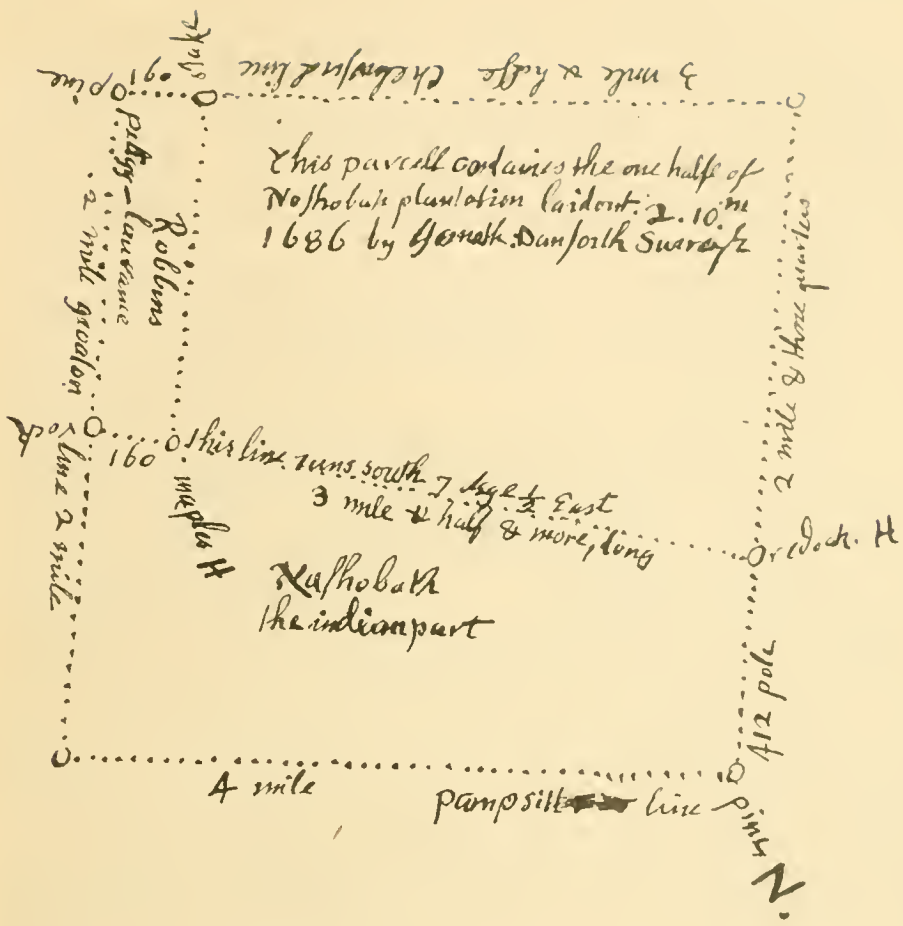 stake
3 mile & halfe Chelmsford line
160
pine
This parcell contains the one halfe of
Nashobah plantation laid out. 2. 10 m
1686 by Jonath. Danforth Survejr
Peleg-laurance
Robbins
2 mile groaton
line 2 mile
2 mile & three quarters
rock
160
maple H
This line runs south 7 dege ½ East
3 mile & half & more, long
redoak. H
Nashobath
the indian part
412 pole
4 mile
pampsitt line
pine
N.